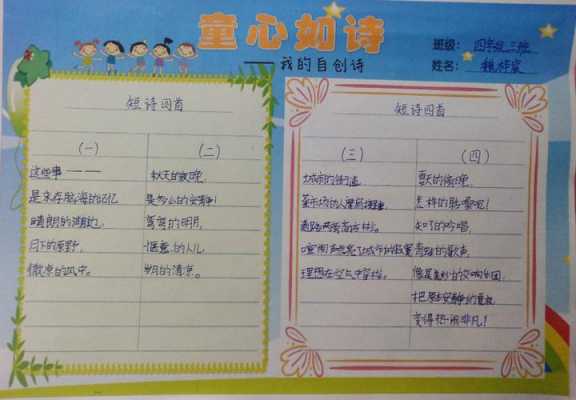 童心如诗
——我的自创诗
班级：四年级三班
姓名：
短诗四首
（一）
这些事———
是永存脑海的记忆
晴朗的湖边，
月下的原野，
微凉的风中。
（二）
秋天的夜晚，
是多么的安静！
弯弯的明月，
惬意的人儿，
岁月的清凉。
短诗四首
（三）
城市的街道，
菜市场的人摩肩接踵，
道路两旁高楼林，
喧闹声
理想在空气中
（四）
夏天的夜晚，
怎样的聆听呢！
知了的吟唱，
青蛙的歌声，
像是美妙的交响乐团，
把原安静的夏夜
变得热闹非凡！